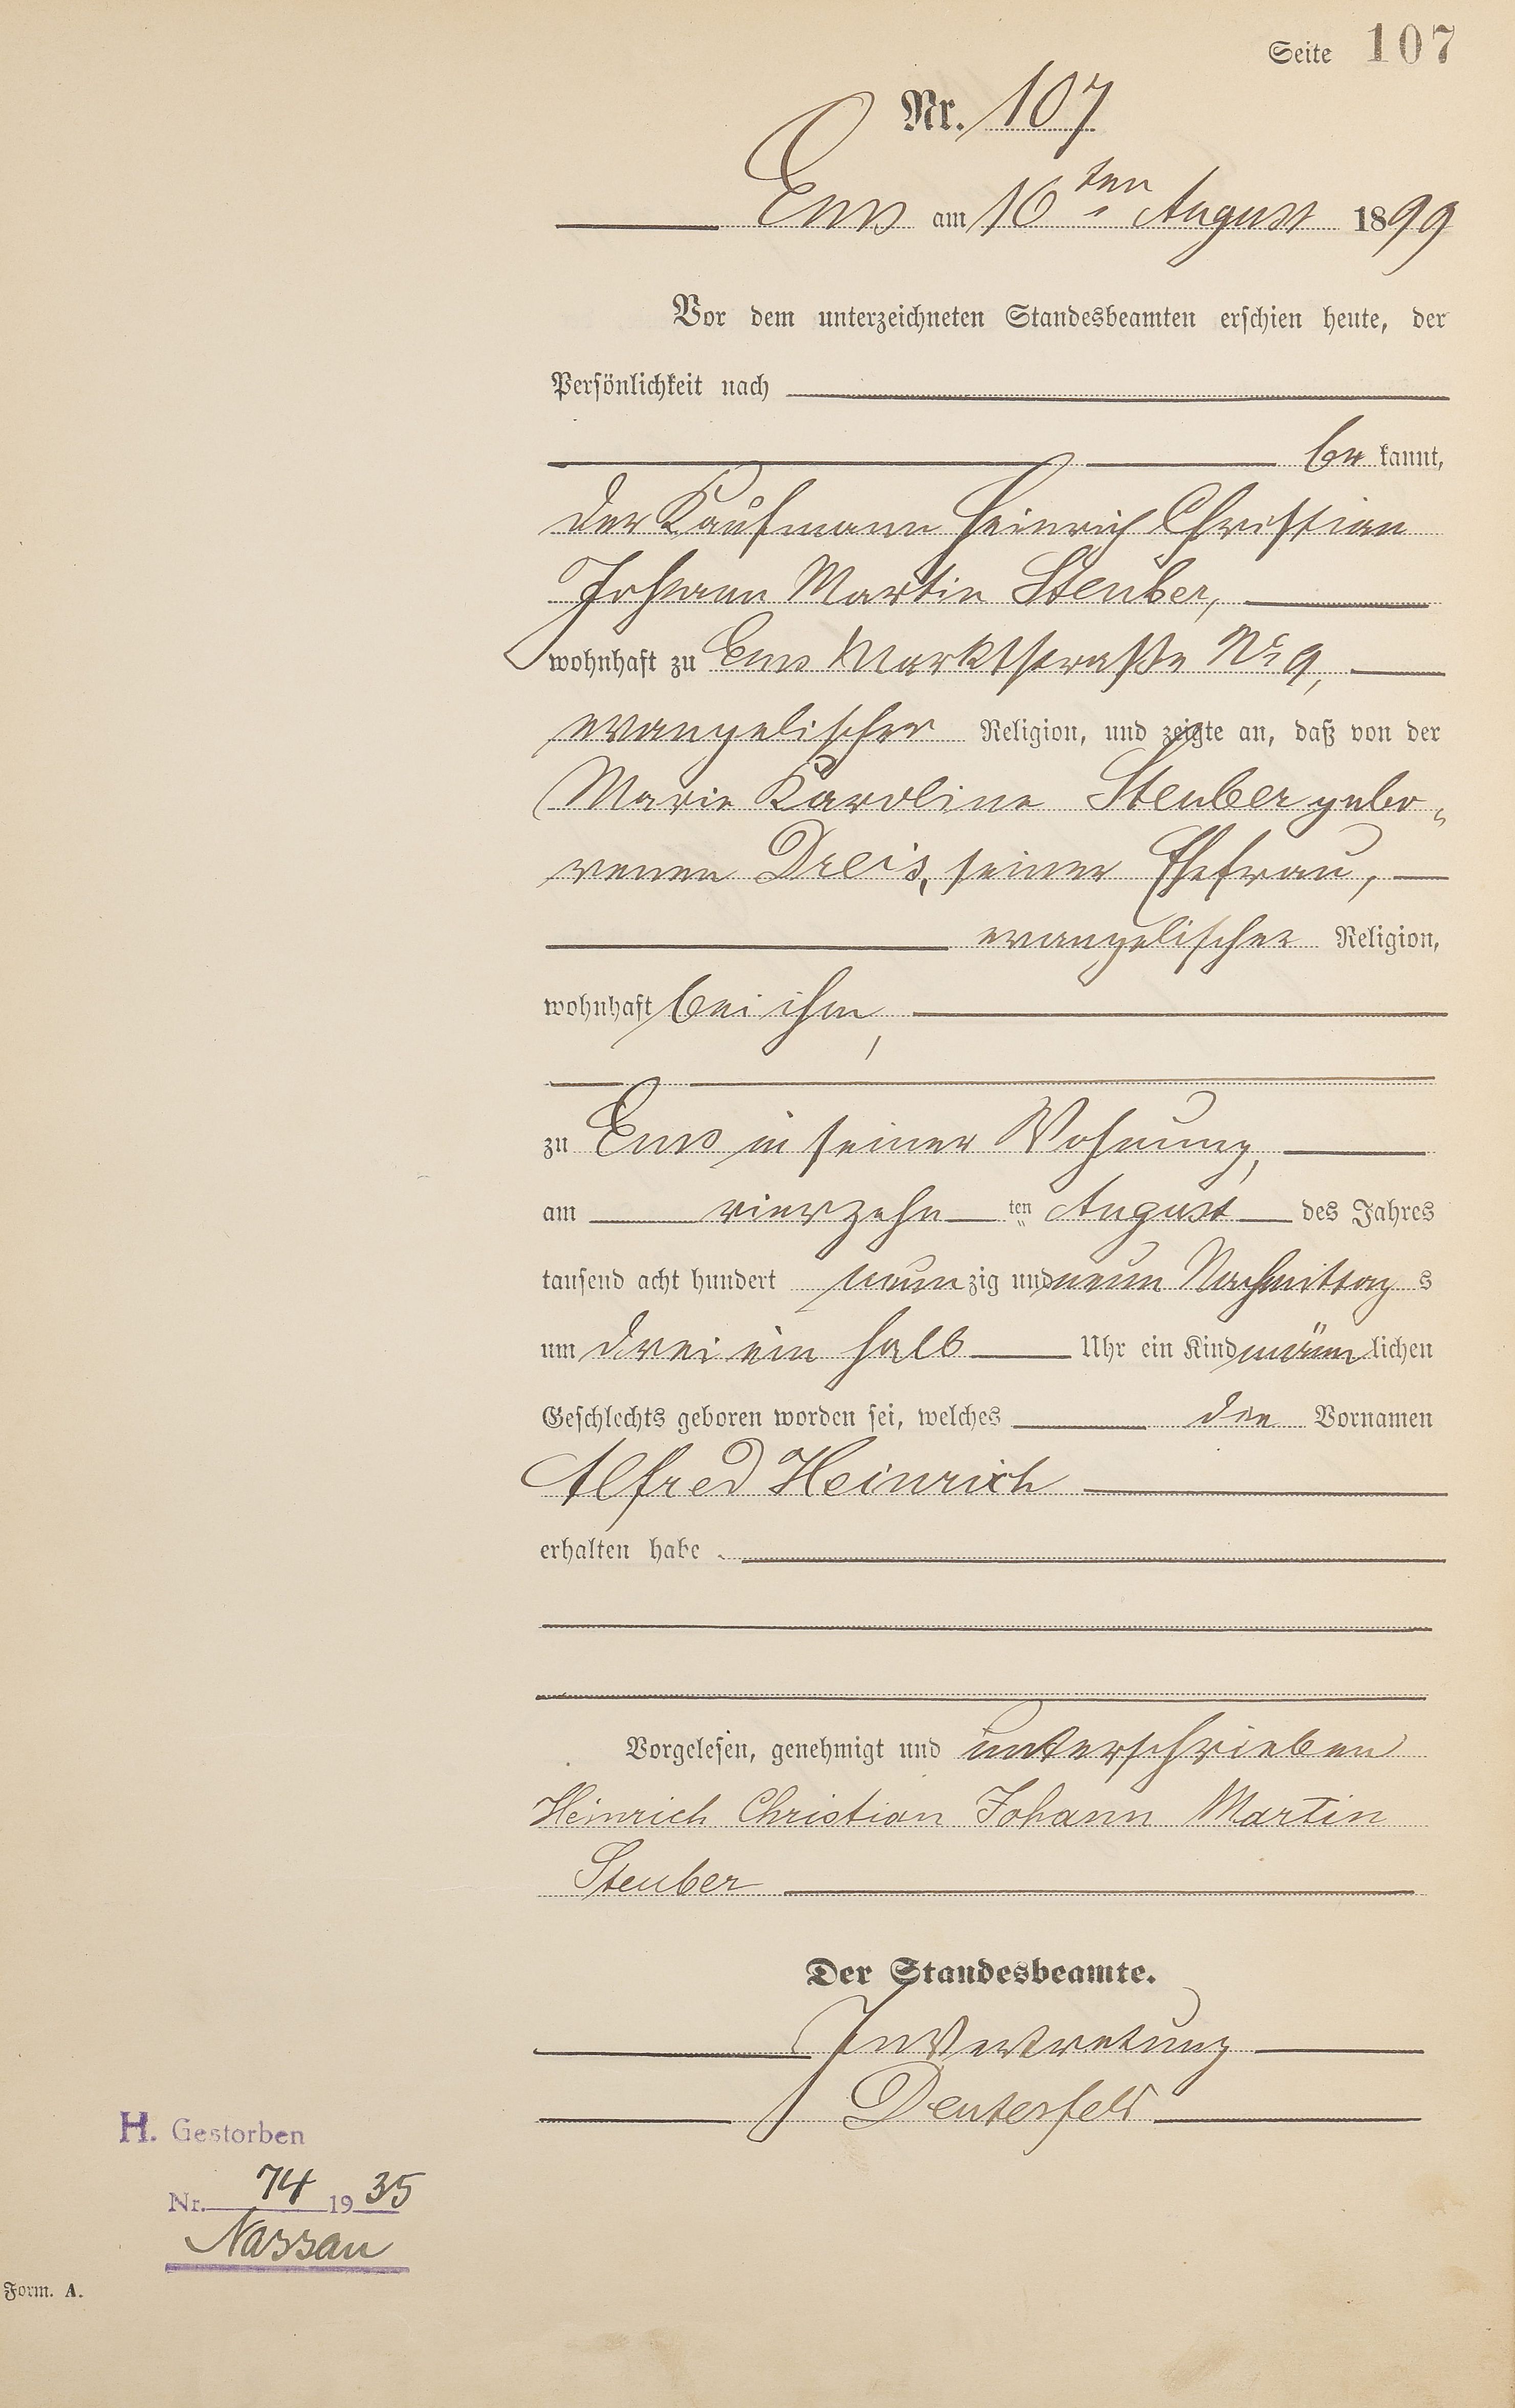 Seite 107
Nr. 107
Ems am 16ten August 1899
Vor dem unterzeichneten Standesbeamten erschien heute, der
Persönlichkeit nach
bekannt,
der Kaufmann Heinrich Christian
Johann Martin Steuber,
wohnhaft zu Ems Marktstraße No 9,
evangelischer Religion, und zeigte an, daß von der
Marie Karoline Steuber gebo„
renen Dreis, seiner Ehefrau,
evangelischer Religion,
wohnhaft bei ihm,
zu Ems in seiner Wohnung,
am vierzehnten August des Jahres
tausend acht hundert neunzig und neun Nachmittags
um drei ein halb Uhr ein Kind männlichen
Geschlechts geboren worden sei, welches die Vornamen
Alfred Heinrich
erhalten habe.
Vorgelesen, genehmigt und unterschrieben
Heinrich Christian Johann Martin
Steuber
Der Standesbeamte.
In Vertretung
Deutesfeld
H. Gestorben
Nr. 74 1935
Nassau
Form. A.